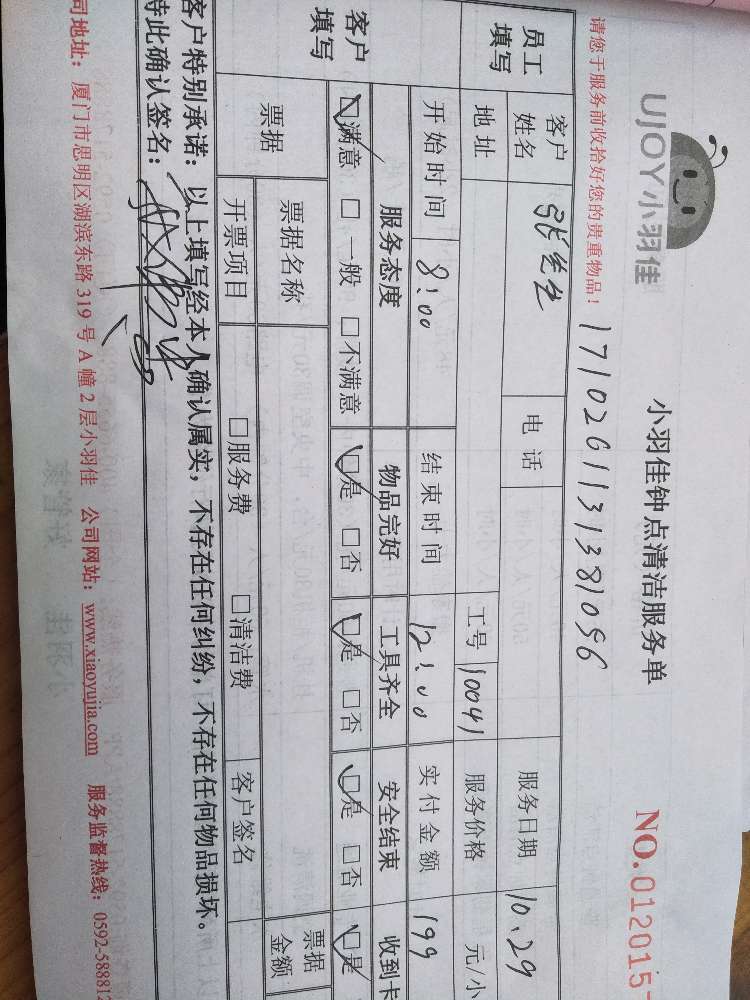 UJOY小羽佳
小羽佳钟点清洁服务单
NO.012015
请您于服务前收拾好您的贵重物品！
1710261131381056
员工填写
客户姓名 张先生 电话 服务日期 10.29
地址 工号 10041 服务价格 元/小
开始时间 8:00 结束时间 12:00 实付金额 199
客户填写
服务态度 物品完好 工具齐全 安全结束 收到卡
☑满意 □一般 □不满意 ☑是 □否 ☑是 □否 ☑是 □否 ☑是
票据 票据名称 票据金额
开票项目 □服务费 □清洁费 客户签名
客户特别承诺：以上填写经本人确认属实，不存在任何纠纷，不存在任何物品损坏。
特此确认签名：
司地址：厦门市思明区湖滨东路319号A幢2层小羽佳 公司网站：www.xiaoyujia.com 服务监督热线：0592-588812